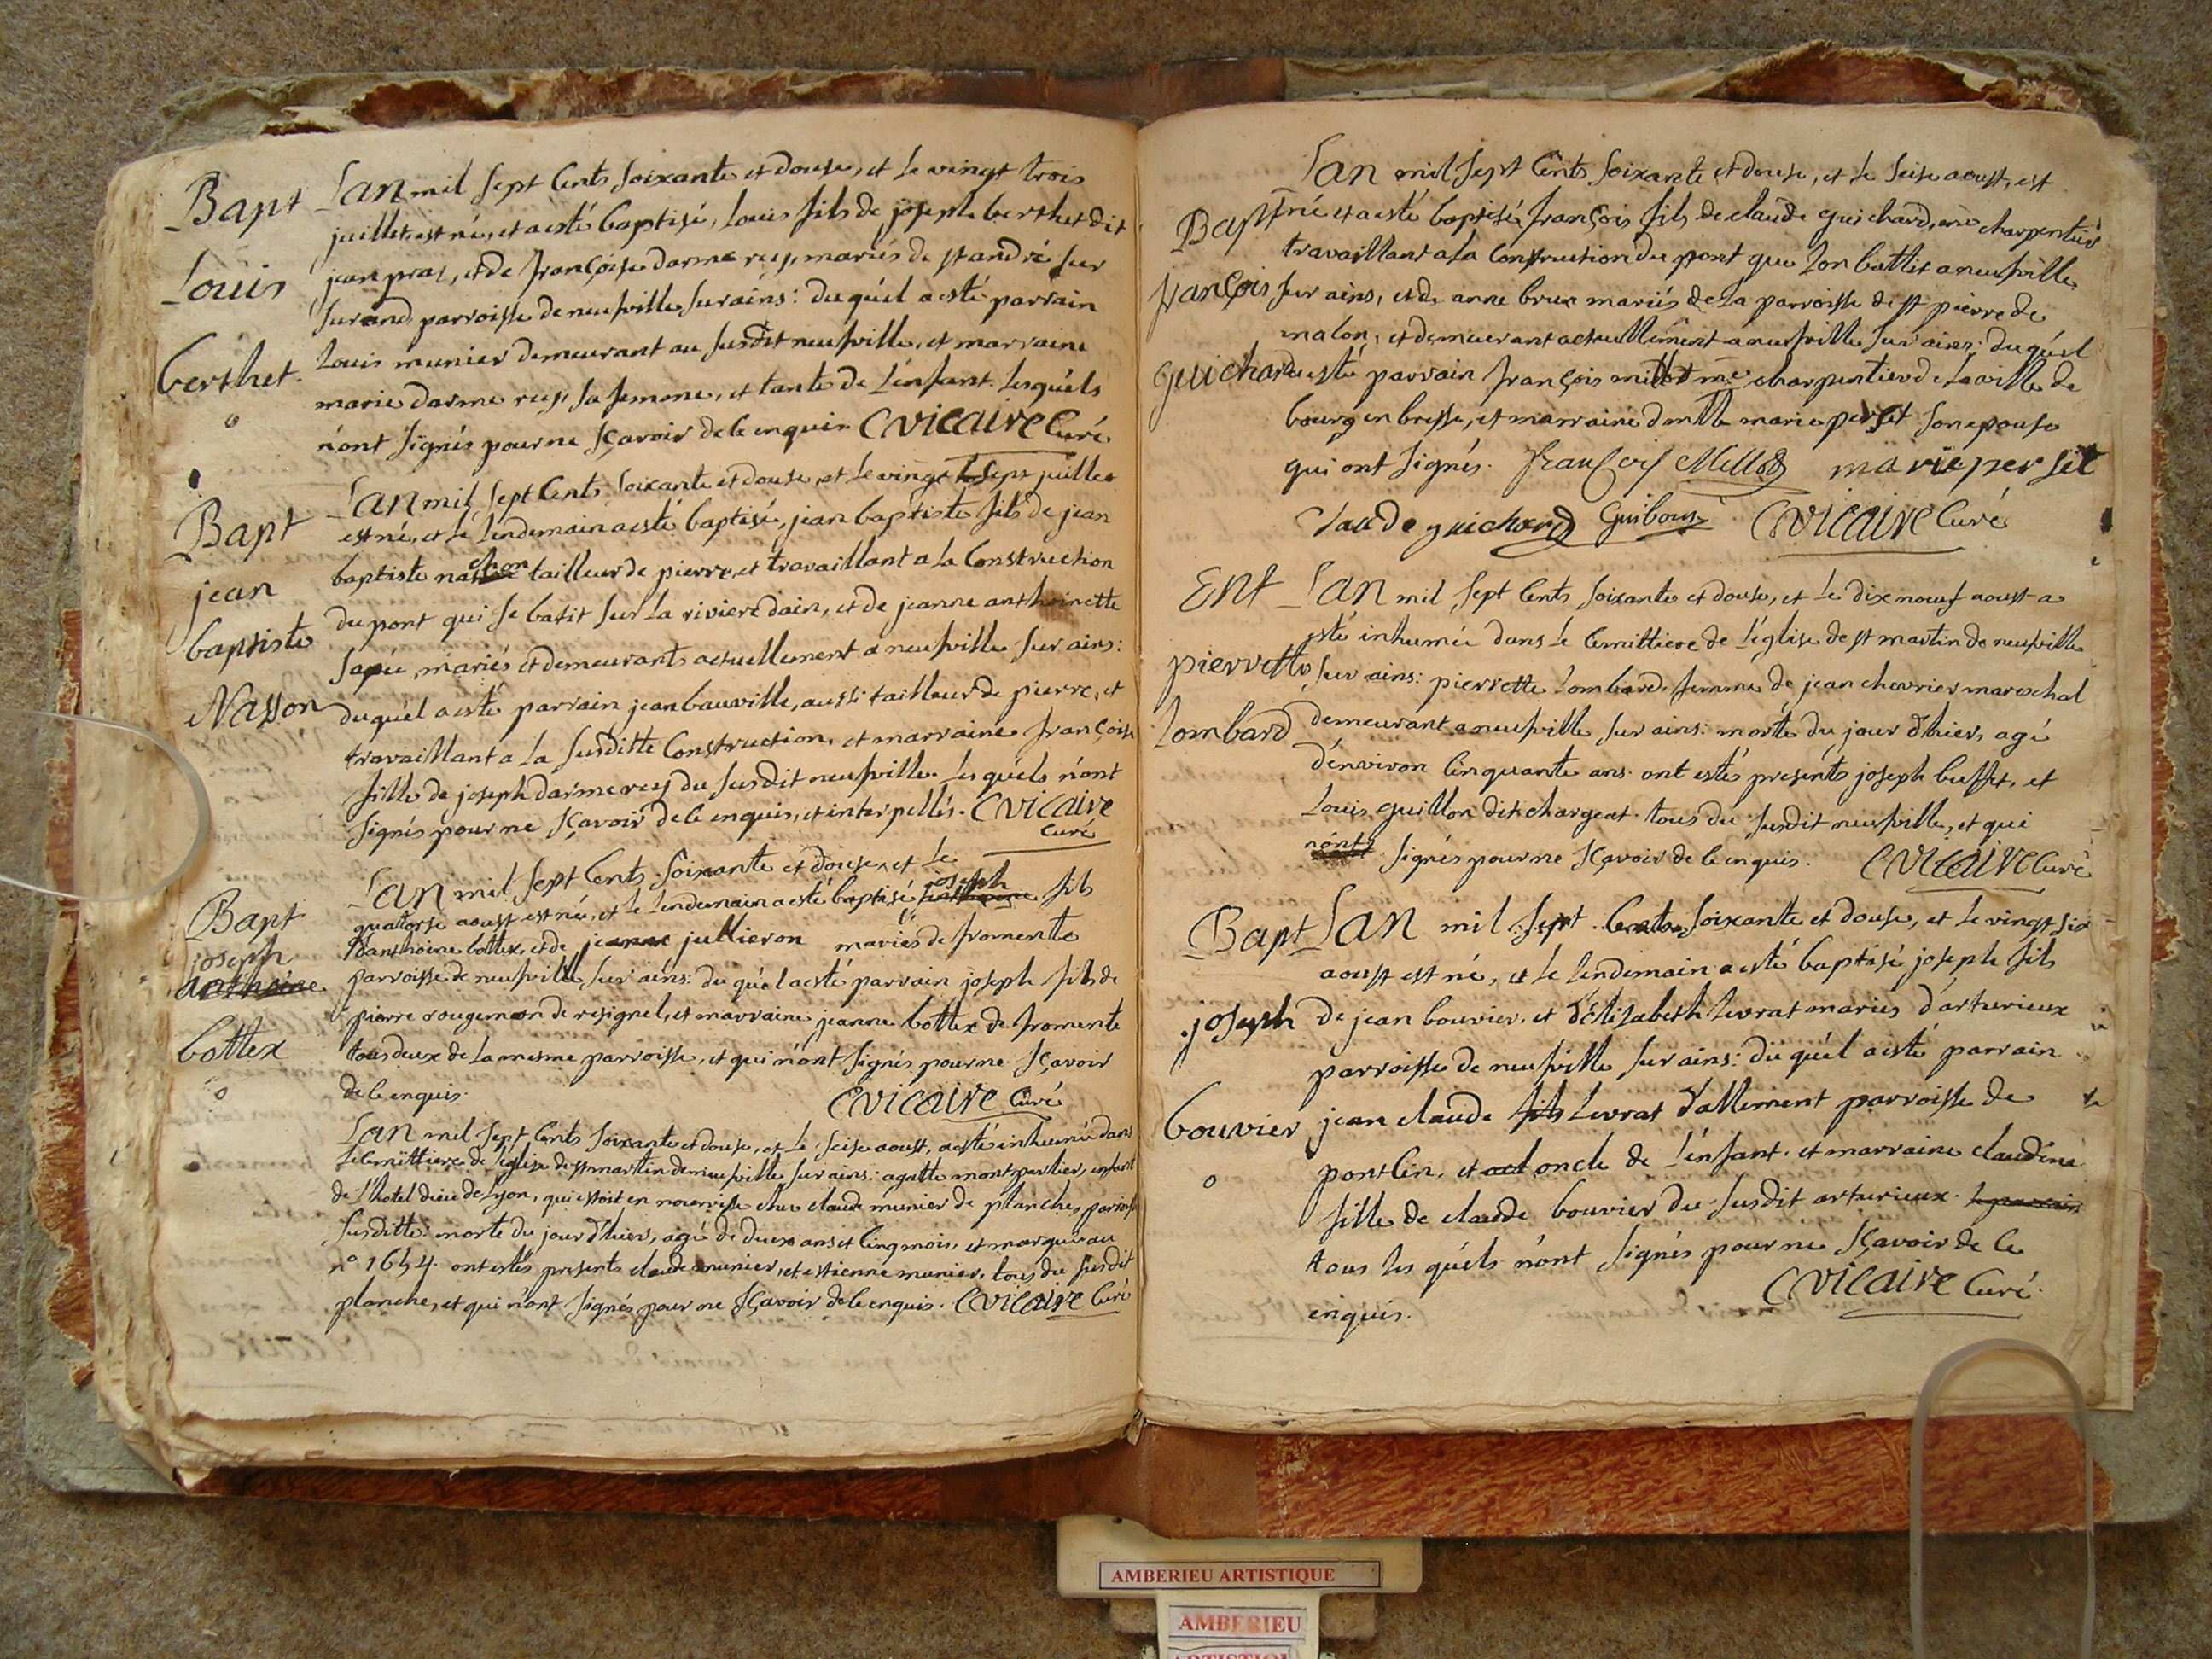 Bapt
Louis
berthet
Lan mil sept Cents soixante et douse, et le vingt trois
juillet est né, et a esté baptisé, louis fils de joseph berthet dit
jean pras, et de françoise darmerey, mariés de st andré sur
surand parroisse de neufville sur ains: duquél a esté parrain
Louis munier demeurant au susdit neufville, et marraine
marie darmerey, sa femme, et tante de L'énfant. Lesquéls
n'ont signés pour ne sçavoir de le enquis. CVICAIRE Curé
Bapt
jean
baptiste
Nasson
Lan mil sept Cents soixante et douse, et le vingt sept juillet
est né, et le Lendemain a esté baptisé, jean baptiste fils de jean
baptiste tailleur de pierre, et travaillant a la Construction
du pont qui se batit sur la riviere dain, et de jeanne anthoinette
mariés et demeurants actuellement a neufville sur ains:
duquél a esté parrain jean bauville, aussi tailleur de pierre, et
travaillant a la susditte Construction, et marraine françoise
fille de joseph darmerey du susdit neufville. Lesquéls n'ont
signés pour ne sçavoir de le enquis, et interpellés. CVICAIRE
Curé
Bapt
joseph
anthoine
bottex
Lan mil sept Cents soixante et douse, et le
quatorse aoust est né, et le Lendemain a esté baptisé joseph fils
danthoine bottex, et de jeanne jullieron mariés de fromente
parroisse de neufville sur ains: du quél a esté parrain joseph fils de
pierre rougemon de resignel, et marraine jeanne bottex de fromente
tous deux de la mesme parroisse, et qui n'ont signés pour ne sçavoir
de le enquis. CVICAIRE Curé
Lan mil sept Cents soixante et douse, et le seise aoust, a esté inhumée dans
le Cemittiere de l'église de st martin de neufville sur ains: agatte montpartier, enfant
de l'hotel dieu de Lyon, qui estoit en nourrisse ches claude munier de planches parroisse
susditte: morte du jour d'hier, agé de deux ans et Cinq mois, et marquée au
n° 1654. ont estés presents claude munier, et estienne munier, tous du susdit
planche, et qui n'ont signés pour ne sçavoir de le enquis. CVICAIRE Curé
Bapt
françois
guichard
Lan mil sept Cents soixante et douse, et le seise aoust, est
né et a esté baptisé françois fils de claude guichard, me charpentier
travaillant a la Construction du pont que lon battit a neufville
sur ains, et de anne brux mariés de la parroisse de st pierre de
malon, et demeurant actuellement a neufville sur ains: duquél
a esté parrain françois millot me charpentier de la ville de
bourg en bresse, et marraine demlle marie perset son epouse
qui ont signés. françois Millot marie perset
Claude guichard Guibourg CVICAIRE Curé
Ent
pierrette
Lombard
Lan mil sept Cents soixante et douse, et le dix neuf aoust a
esté inhumée dans le Cemittiere de L'église de st martin de neufville
sur ains: pierrette Lombard femme de jean chevrier mareschal
demeurant a neufville sur ains: morte du jour d'hier, agé
d'énviron Cinquante ans. ont estés presénts joseph buffet, et
Louis guillon dit chargeat. tous du susdit neufville, et qui
n'ont signés pour ne sçavoir de le enquis. CVICAIRE Curé
Bapt
joseph
bouvier
Lan mil sept Cents soixante et douse, et le vingt six
aoust est né, et le Lendemain a esté baptisé joseph fils
de jean bouvier, et d'Elizabeth Levrat mariés d'arturieux
parroisse de neufville sur ains: duquél a esté parrain
jean claude fils Levrat d'allement parroisse de
ponslin, et oncle de L'énfant. et marraine claudine
fille de claude bouvier du susdit arturieux.
tous les quéls n'ont signés pour ne sçavoir de le
enquis. CVICAIRE Curé
AMBERIEU ARTISTIQUE
AMBERIEU
ARTISTIQUE